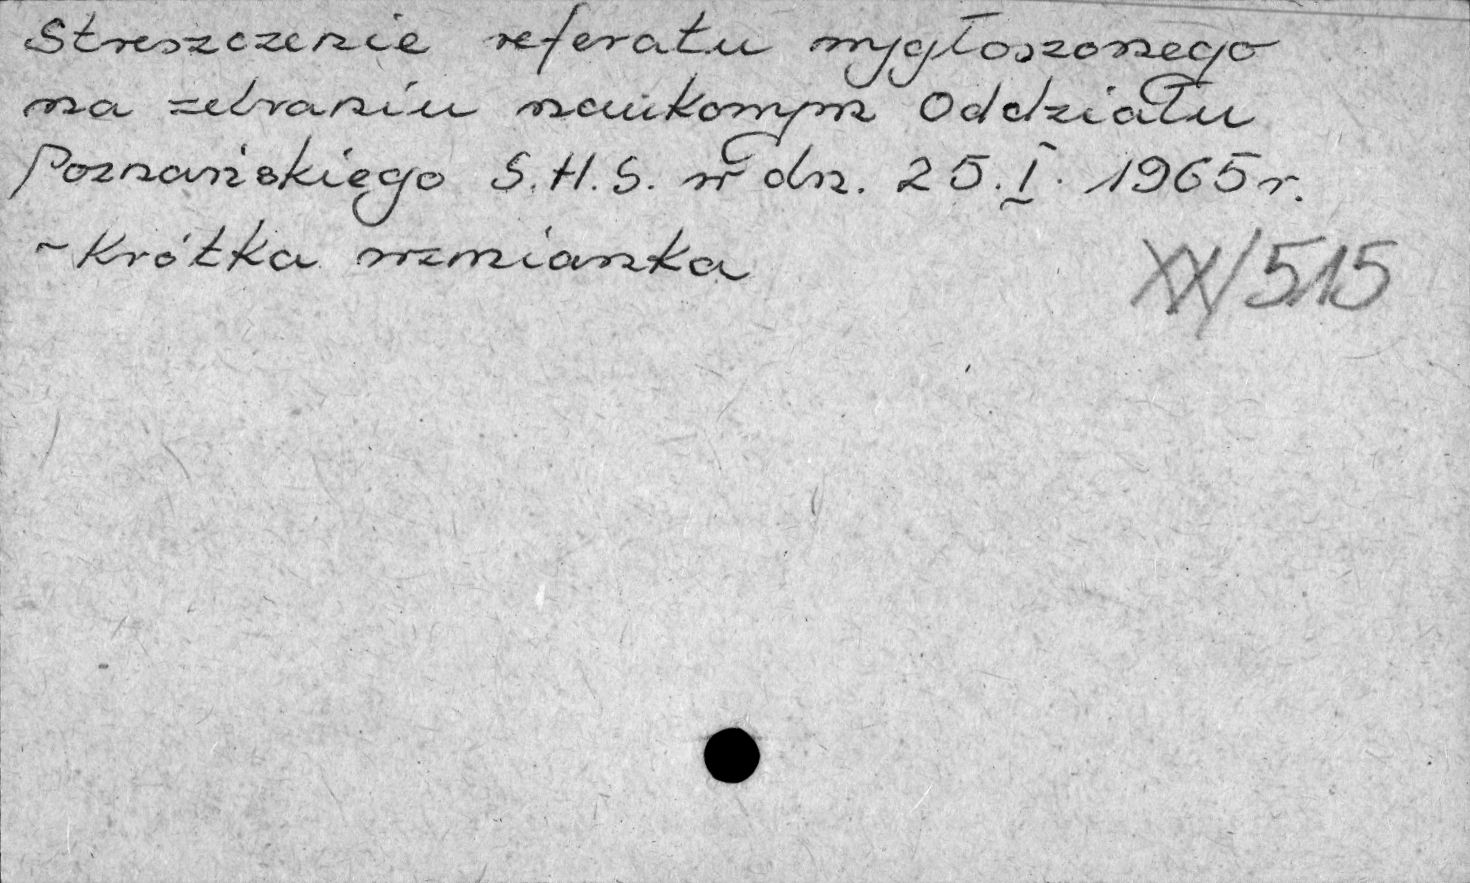 Streszczenie referatu wygłoszonego
na zebraniu naukowym Oddziału
Poznańskiego S.H.S. w dn. 25.I. 1965 r.
- Krótka wzmianka
XX/515